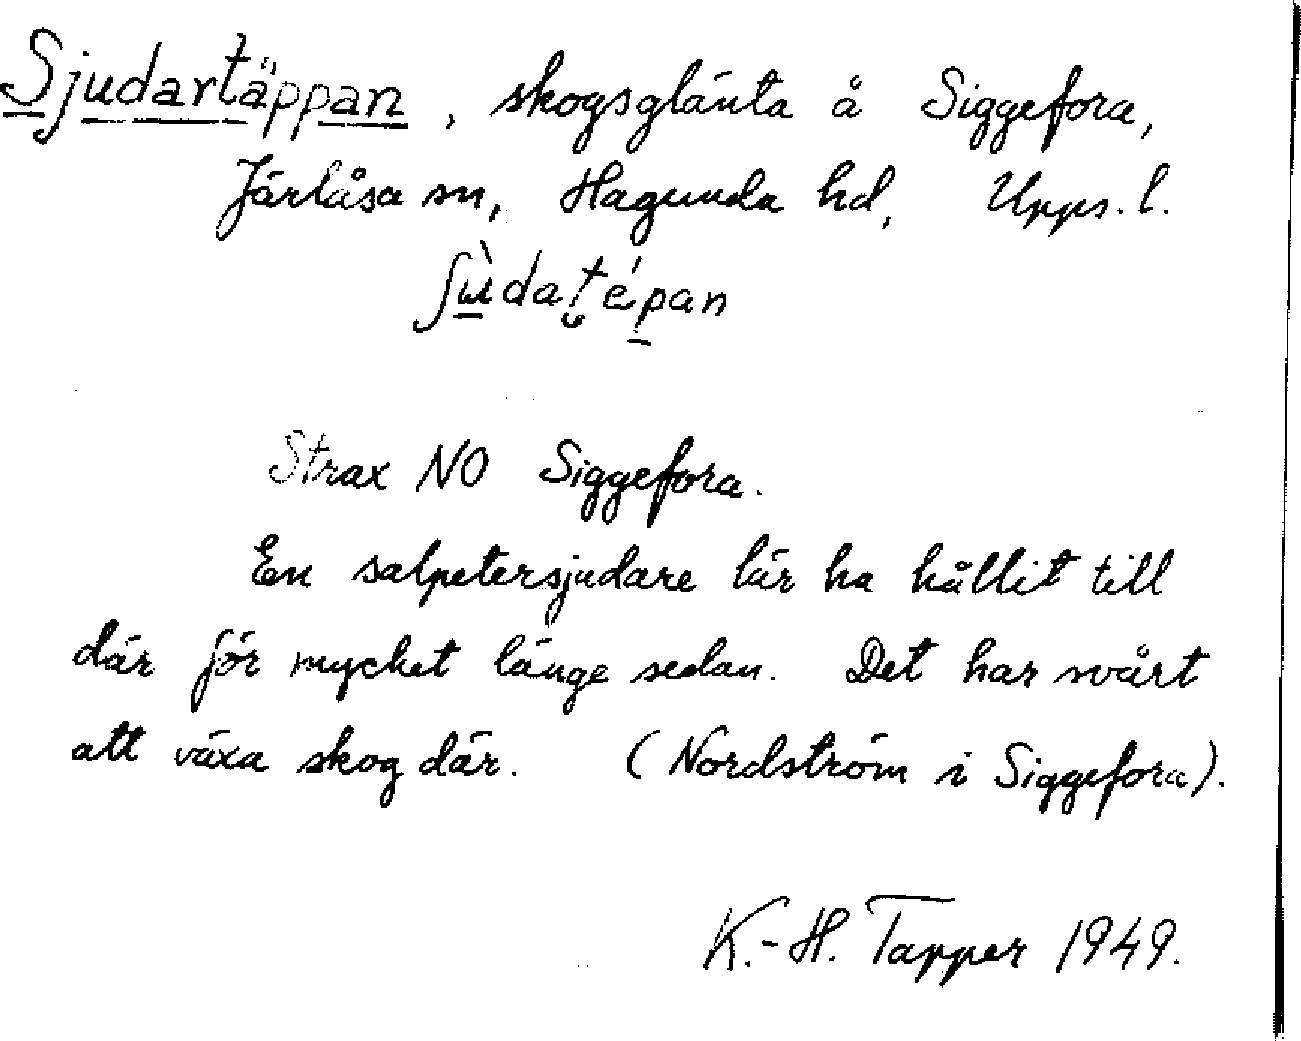 Sjudartäppan, skogsglänta å Siggefora,
Järlåsa sn, Hagunda hd, Upps. l.
Strax NO Siggefora.
En salpetersjudare lär ha hållit till
där för mycket länge sedan. Det har svårt
att växa skog där. (Nordström i Siggefora).
K.-H. Tapper 1949.